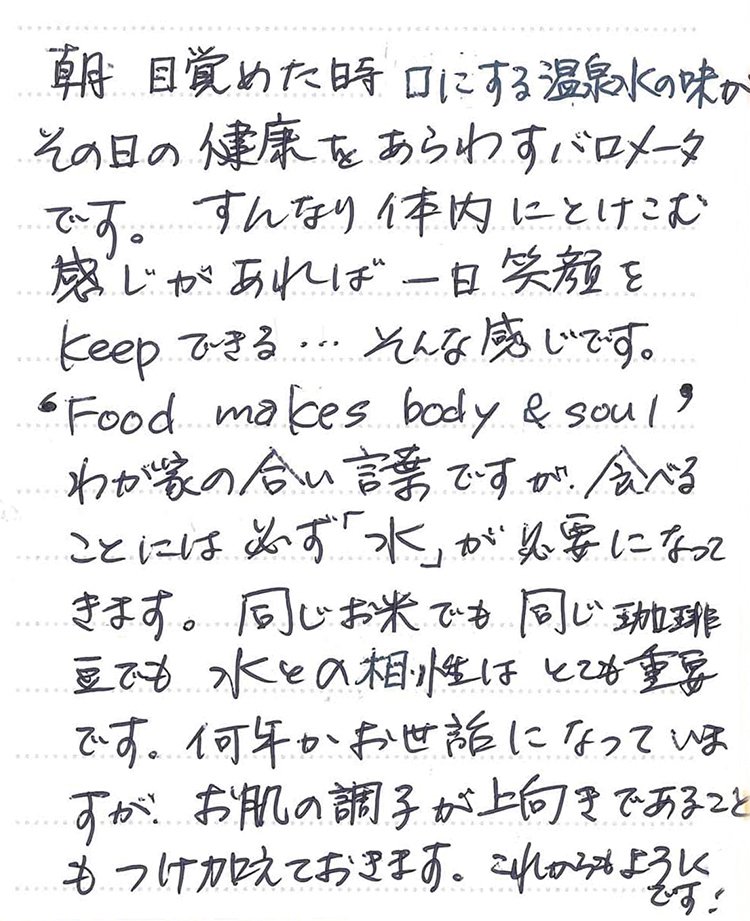 朝 目覚めた時 口にする温泉水の味が
その日の健康をあらわすバロメータ
です。 すんなり体内にとけこむ
感じがあれば一日笑顔を
keepできる… そんな感じです。
“Food makes body & soul”
わが家の合い言葉ですが、食べる
ことには必ず「水」が必要になって
きます。同じお米でも同じ珈琲
豆でも 水との相性は とても重要
です。何年かお世話になっていま
すが、お肌の調子が上向きであること
もつけ加えておきます。これからもよろしく
です!